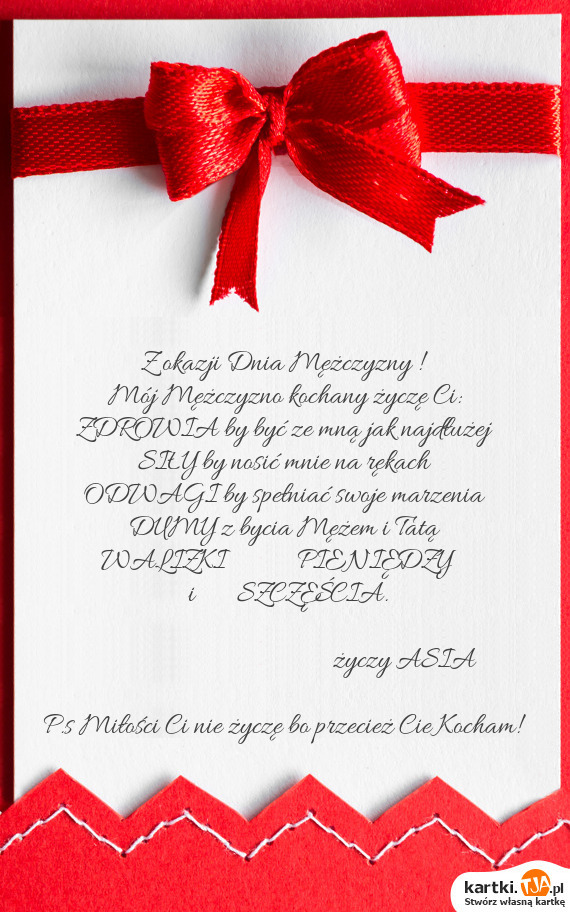 Z okazji Dnia Mężczyzny !
Mój Mężczyzno kochany życzę Ci:
ZDROWIA by być ze mną jak najdłużej
SIŁY by nosić mnie na rękach
ODWAGI by spełniać swoje marzenia
DUMY z bycia Mężem i Tatą
WALIZKI PIENIĘDZY
i SZCZĘŚCIA.
życzy ASIA
P.s Miłości Ci nie życzę bo przecież Cie Kocham!
kartki.TJA.pl
Stwórz własną kartkę